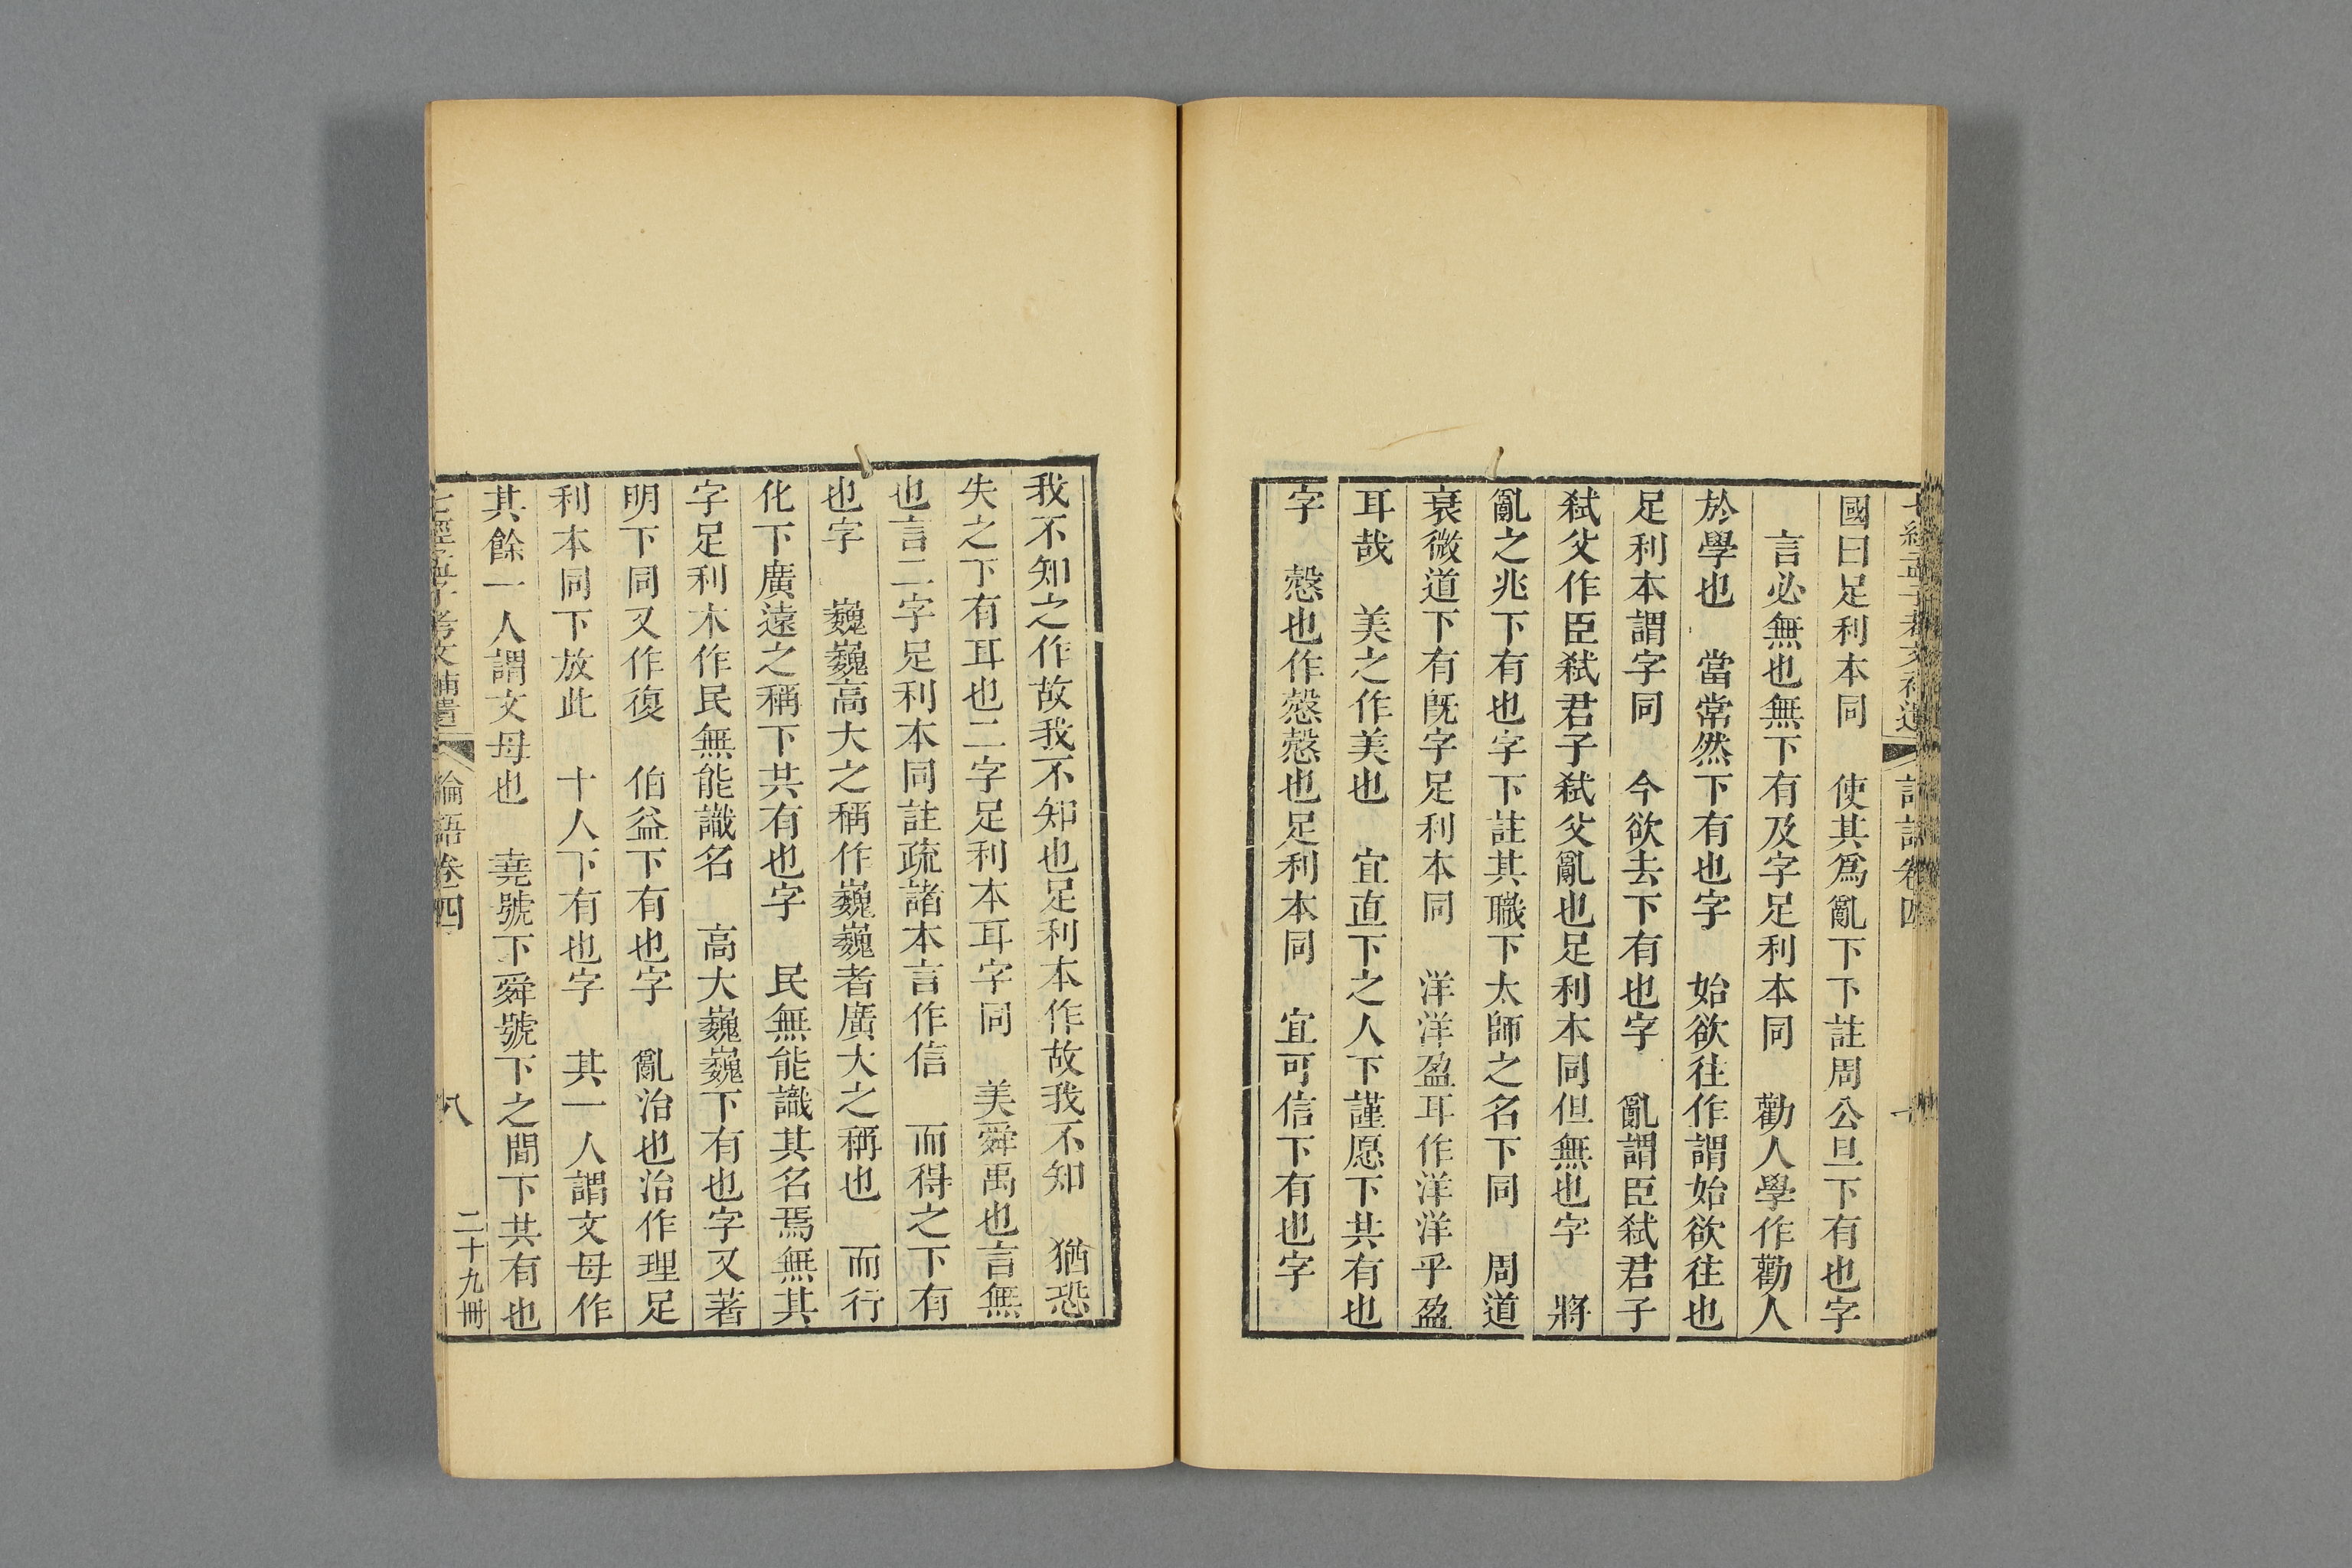 國曰足利本同　使其爲亂下下註周公旦下有也字
言必無也無下有及字足利本同　勸人學作勸人
於學也　當常然下有也字　始欲往作謂始欲往也
足利本謂字同　今欲去下有也字　亂謂臣弑君子
弑父作臣弑君子弑父亂也足利本同但無也字　將
亂之兆下有也字下註其職下太師之名下同　周道
衰微道下有旣字足利本同　洋洋盈耳作洋洋乎盈
耳哉　美之作美也　宜直下之人下謹愿下共有也
字　慤也作慤慤也足利本同　宜可信下有也字
我不知之作故我不知也足利本作故我不知　猶恐
失之下有耳也二字足利本耳字同　美舜禹也言無
也言二字足利本同註疏諸本言作信　而得之下有
也字　巍巍高大之稱作巍巍者廣大之稱也　而行
化下廣遠之稱下共有也字　民無能識其名焉無其
字足利木作民無能識名　高大巍巍下有也字又著
明下同又作復　伯益下有也字　亂治也治作理足
利本同下放此　十人下有也字　其一人謂文母作
其餘一人謂文母也　堯號下舜號下之間下共有也
七經孟子考文補遺　論語卷四　八　二十九冊